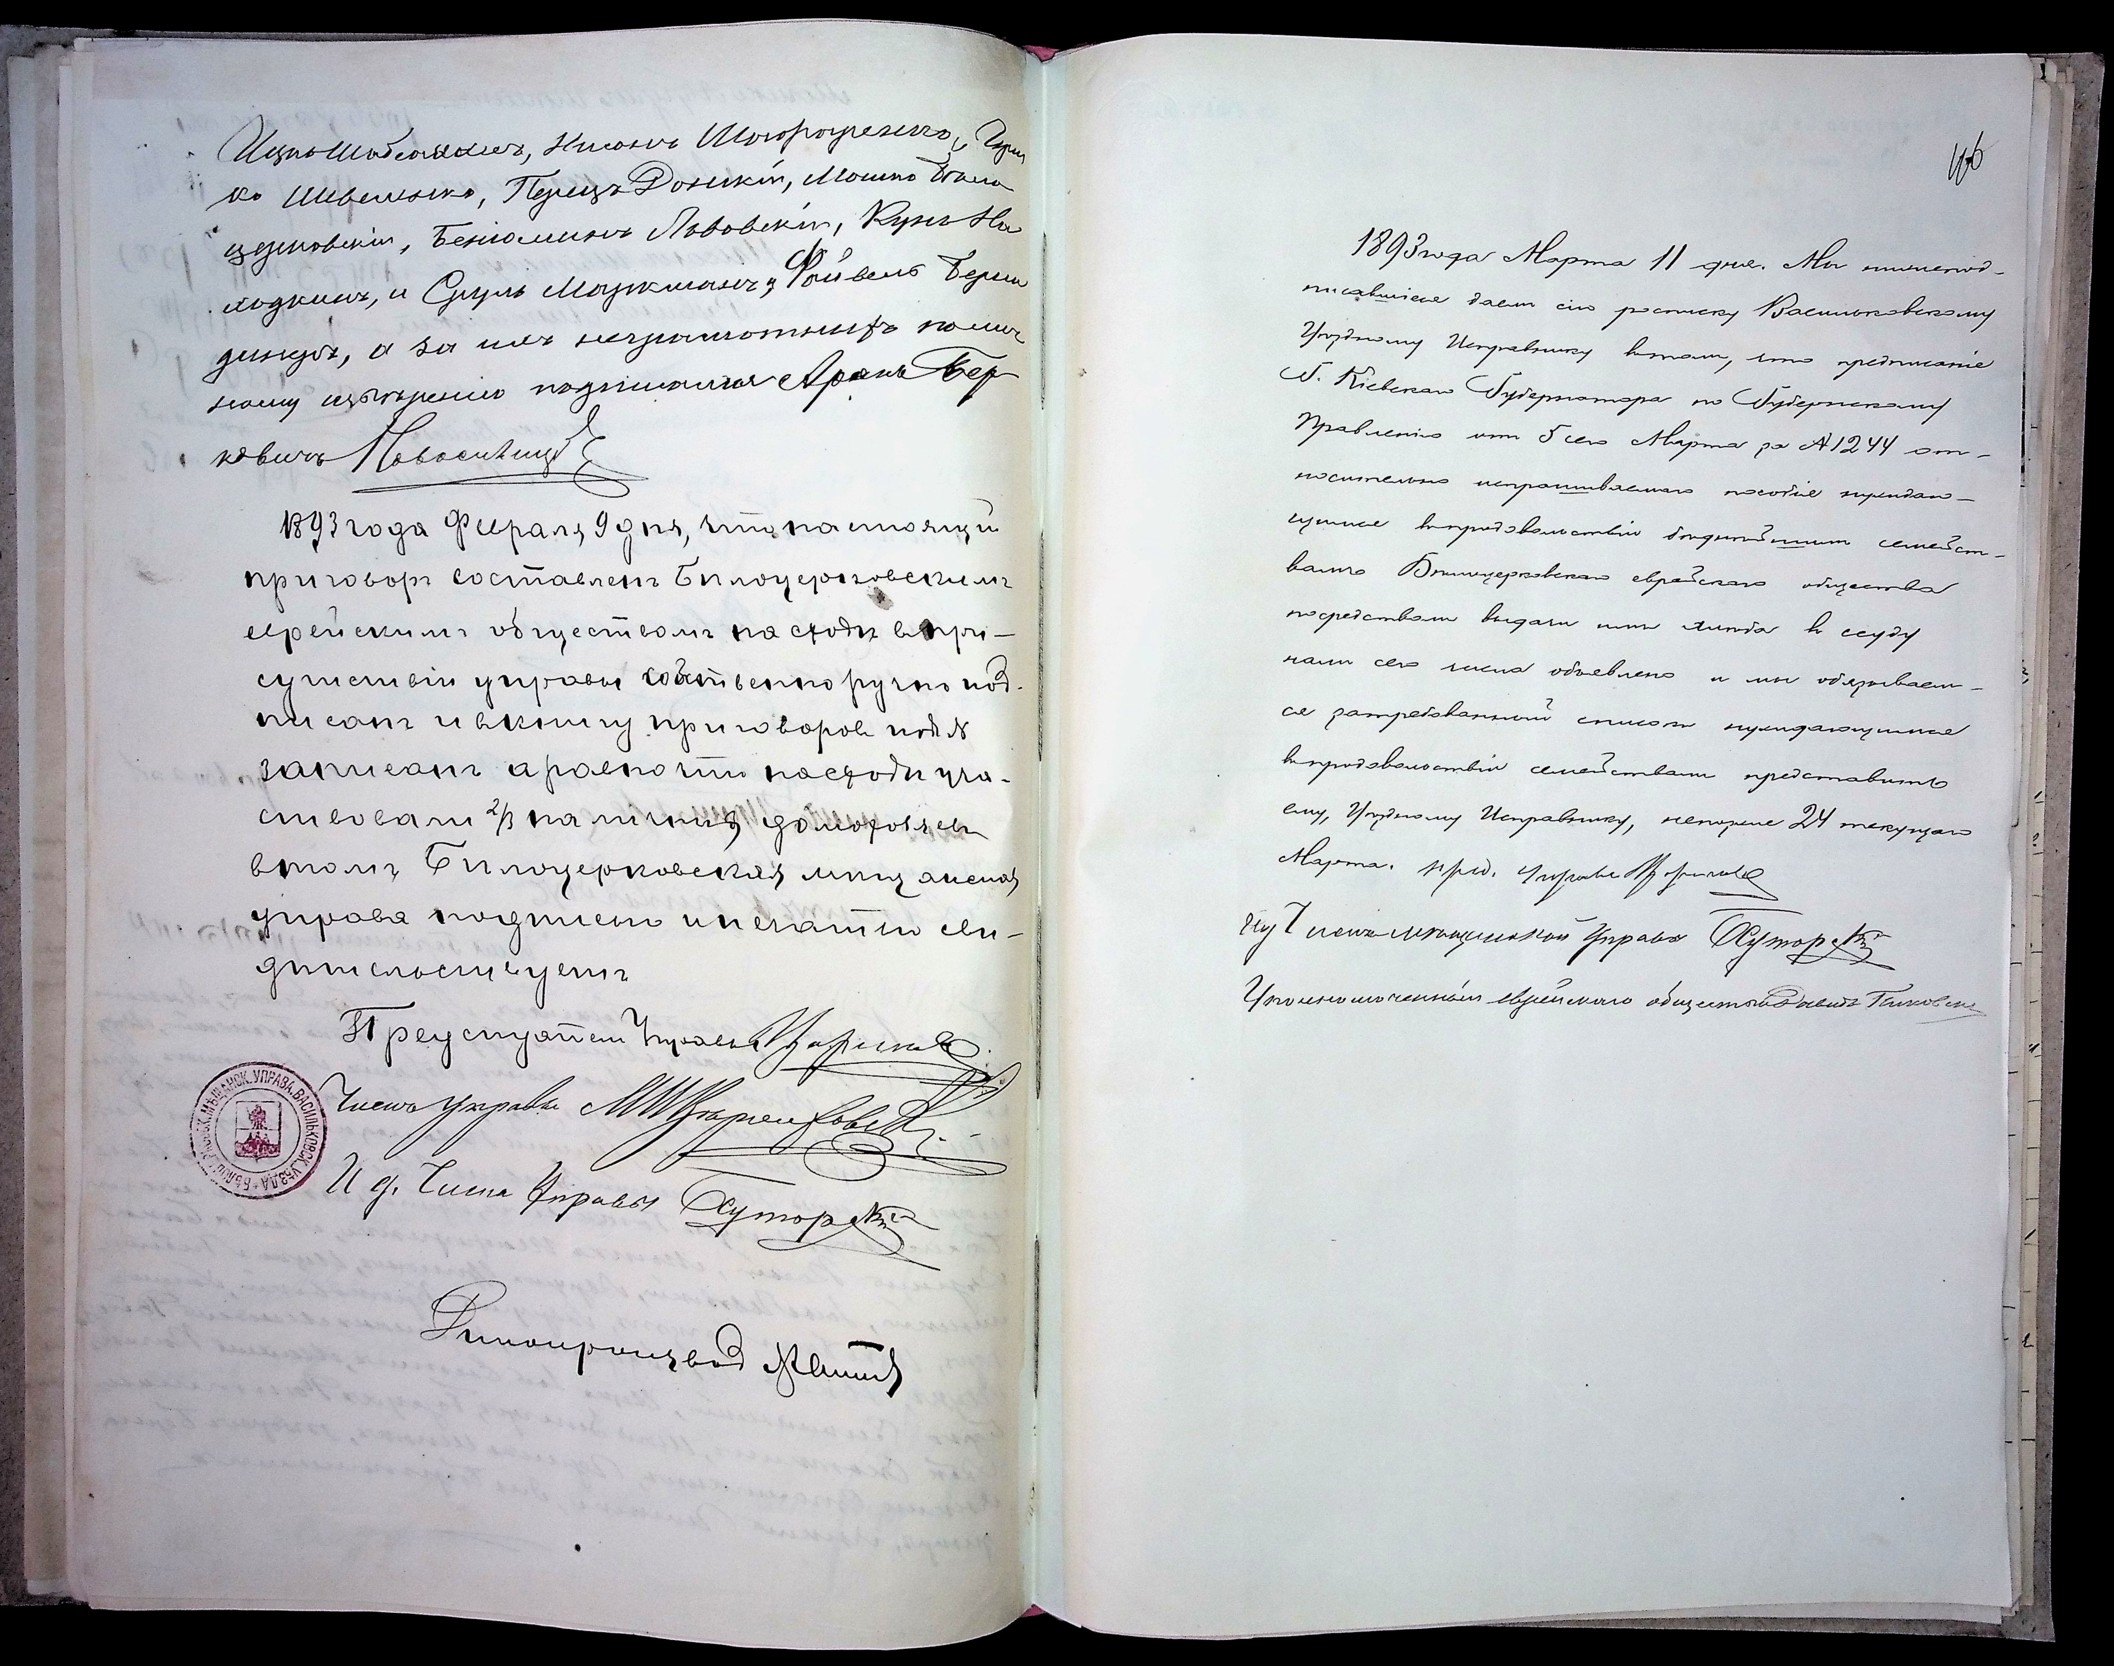 Ицко Шабсаевич, Нисонъ Шогородженко, Герш
ко Шевелько, Перецъ Донскій, Мошко Бѣло
церковскій, Беніоминъ Львовскій, Кунъ На
ходкинъ, и Сруль Маржманъ, Файвель Берен
а за ихъ неграмотныхъ по лич
ному их довѣрію подписался Аронъ Бер
ковичъ Новоселицкій
1893 года Февраля 9 дня, что настоящій
приговоръ составленъ Бѣлоцерковскимъ
еврейскимъ обществомъ на сходѣ въ при-
сутствіи управы собственноручно под-
писанъ и въ книгу приговоровъ подъ №
записанъ а равно что на сходѣ уча-
ствовали 2/3 наличныхъ домохозяевъ
въ томъ Бѣлоцерковская мѣщанская
управа подписью и печатью сви-
дѣтельствуетъ
Предсѣдатель Управы
Членъ Управы
И д. Члена Управы Хуторскій
БѢЛОЦЕРКОВСК. МѢЩАНСК. УПРАВА ВАСИЛЬКОВСК. УѢЗДА
Дѣлопроизвод
1893 года Марта 11 дня. Мы нижепод-
писавшіеся даемъ сію росписку Васильковскому
Уѣздному Исправнику въ томъ, что предписаніе
Г. Кіевскаго Губернатора по Губернскому
Правленію отъ 5 сего Марта за № 1244 от-
носительно испрашиваемаго пособія нуждаю-
щимся въ продовольствіи бѣднѣйшимъ семейст-
вамъ Бѣлоцерковскаго еврейскаго общества
посредствомъ выдачи имъ хлѣба въ ссуду
намъ сего числа объявлено и мы обязываем-
ся затребованный списокъ нуждающимся
въ продовольствіи семействамъ представить
ему, Уѣздному Исправнику, непозже 24 текущаго
Марта. Пред. Управы
Члена мѣщанской Управы Хуторскій
Уполномоченный еврейскаго общества Давидъ